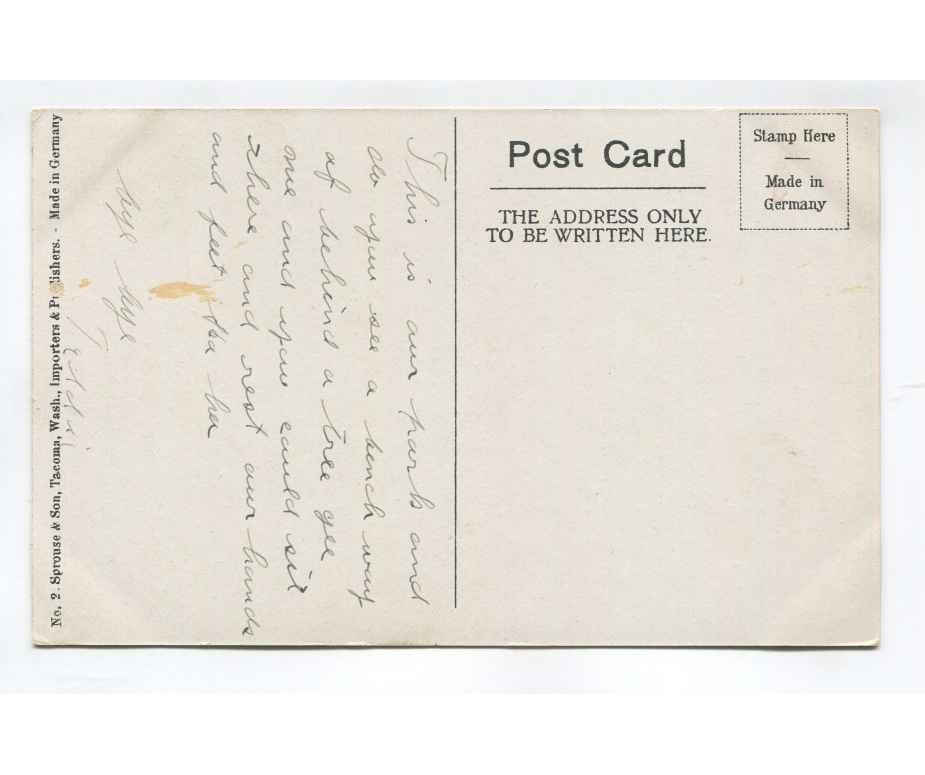 This is our park and
do you see a bench way
of behind a tree gee
me and you could sit
there and rest our hands
and feet Ha ha
bye bye
No. 2. Sprouse & Son, Tacoma, Wash., Importers & Publishers. - Made in Germany
Post Card
THE ADDRESS ONLY
TO BE WRITTEN HERE.
Stamp Here
Made in
Germany